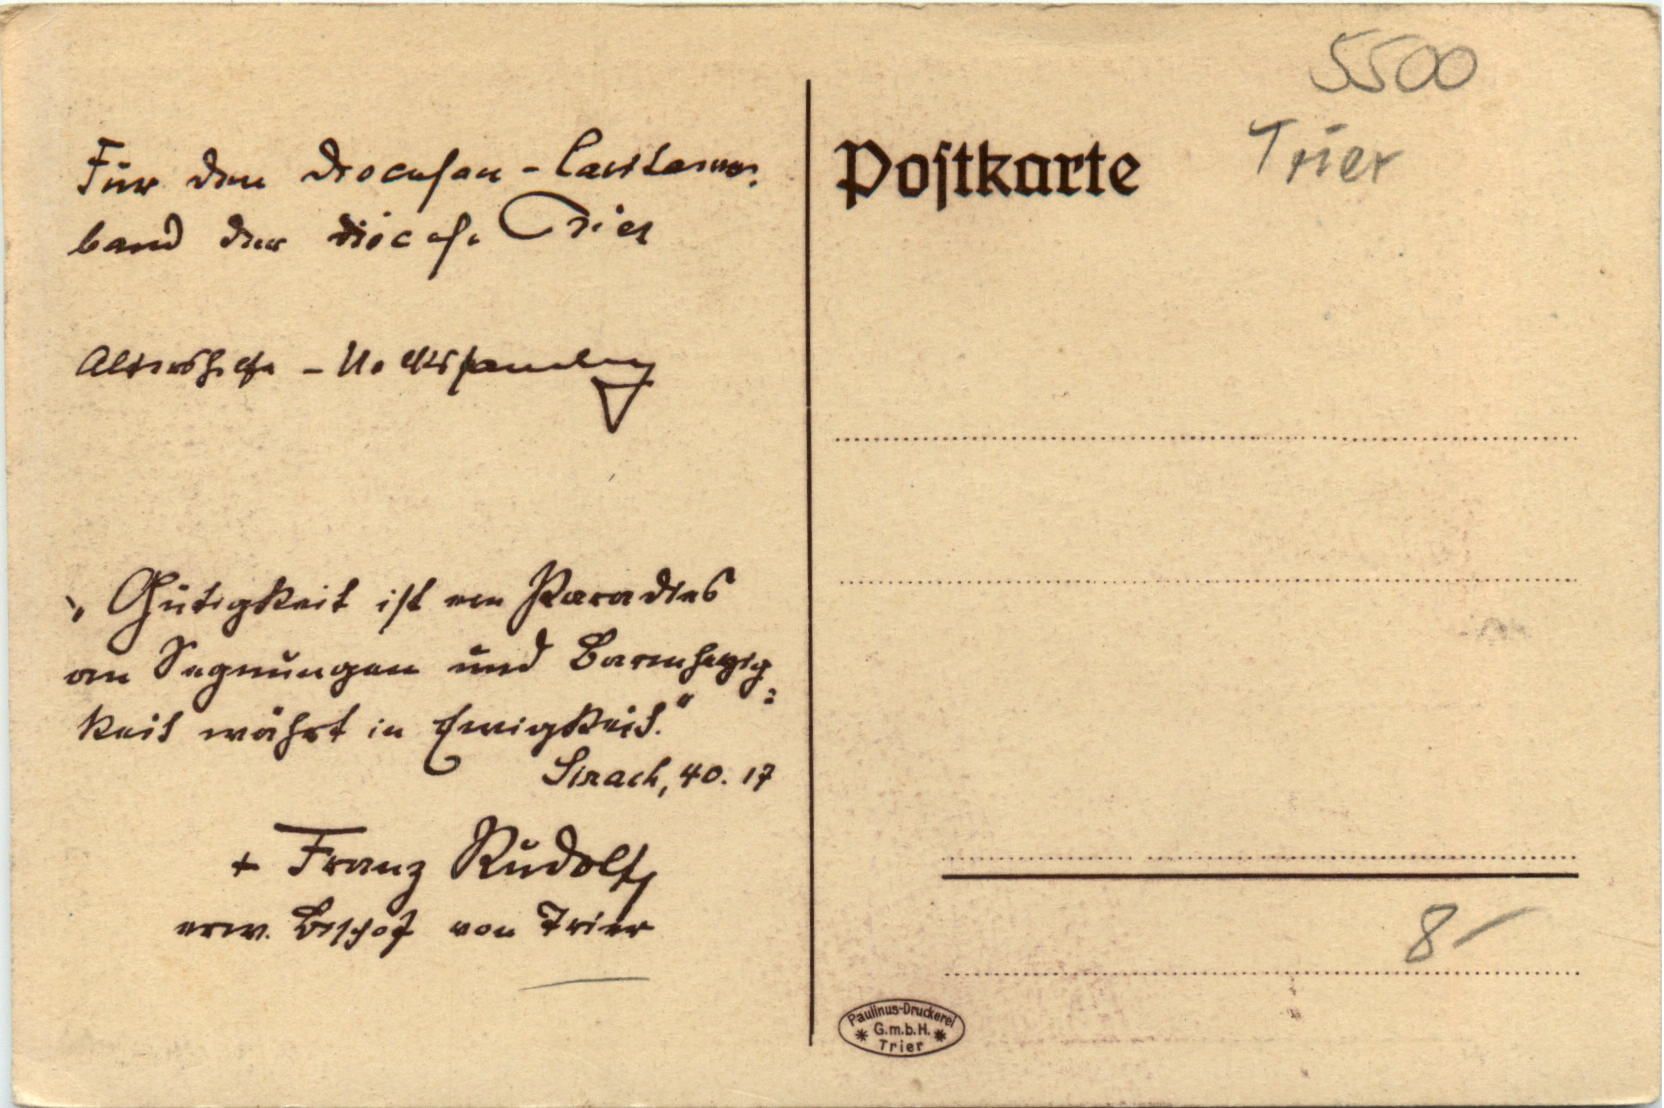 Für den Diocesan-Caritasver:
band der Diöcese Trier
Altershilfe - Volkssammlung
„Gütigkeit ist ein Paradies
an Segnungen und Barmherzig
keit währt in Ewigkeit."
Sirach, 40. 17
+ Franz Rudolf,
erw. Bischof von Trier
Postkarte
5500
Trier
8-
Paulinus-Druckerei
* G.m.b.H. *
Trier